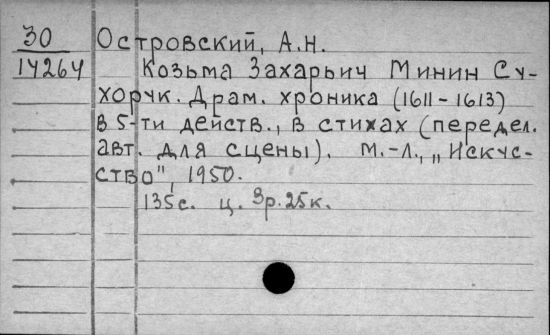 30
14264
Островский, А.Н.
Козьма Захарьич Минин Су-
хорук. Драм. хроника (1611-1613)
в 5-ти действ., в стихах (передел.
авт. для сцены). М.-Л., „Искус-
ство", 1950.
135с. ц. 3р.25к.